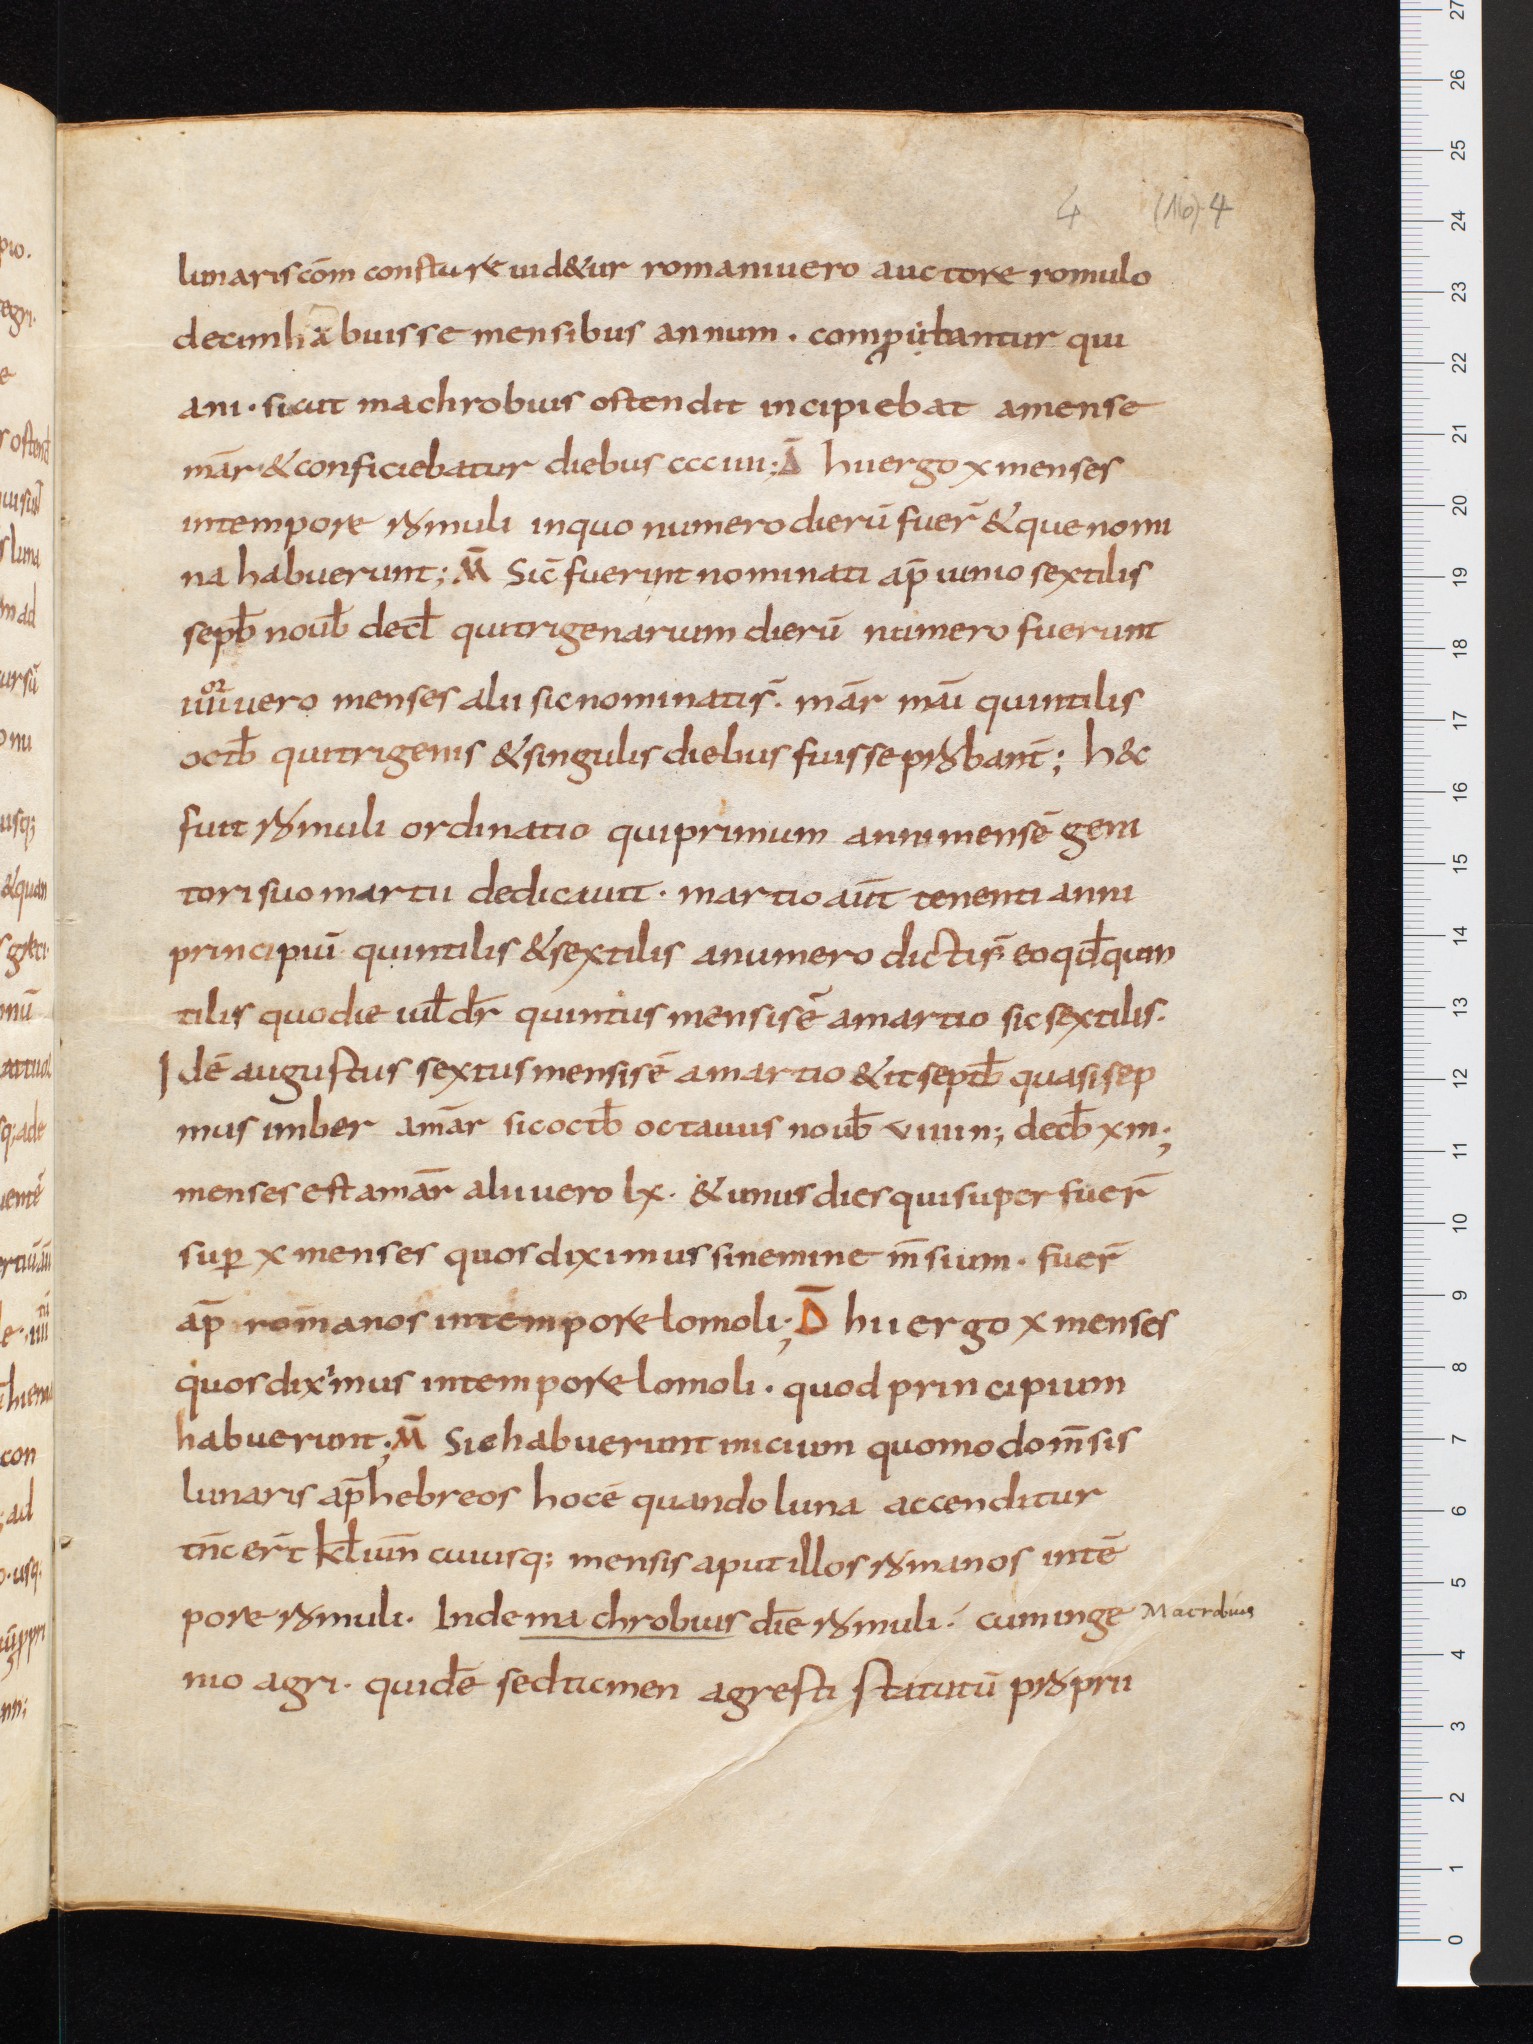 4 (16) 4
lunaris com̄ constare uid&ur romani uero auctore romulo
decim habuisse mensibus annum · computantur qui
ani · sicut machrobius ostendit incipiebat amense
mār· & conficiebatur diebus ccciiii; D̄ hii ergo x menses
intempore romuli inquo numero dierū fuer̄ & que nomi
na habuerunt; M̄ Sic fuerint nominati ap̄ iunio sextilis
sepƀ nouƀ decƀ qui trigenarum dierū numero fuerunt
iiii^or uero menses alii sic nominatis̄· mār māi quintilis
octƀ qui trigenis & singulis diebus fuisse probant̄; h&c
fuit romuli ordinatio qui primum anni mensē geni
tori suo martii dedicauit · martio aūt tenenti anni
principiū quintilis & sextilis anumero dictis̄· eo qđ quin
tilis quo die iuł dr̄ quintus mensis ē amartio sic sextilis·
Idē augustus sextus mensis ē amartio & it septƀ quasi sep
mus imber amār sic octƀ octauus nouƀ uiiii n; decƀ x m·;
menses est amār alii uero lx· & unus dies qui super fuer̄
sup̱ x menses quos diximus sine mine m̄sium · fuer̄
ap̄ romanos intempore lomoli·; D̄ hii ergo x menses
quos diximus intempore lomoli · quod principium
habuerunt·; M̄ Sic habuerunt inicium quomodo m̄sis
lunaris ap̄ hebreos hoc ē quando luna accenditur
tn̄c er̄t kł iuīn cuiusq; mensis aput illos romanos intē
pore romuli· Inde machrobius dīe romuli· cum inge Macrobius
nio agri· quidē sed tiemen agresti statutū proprii